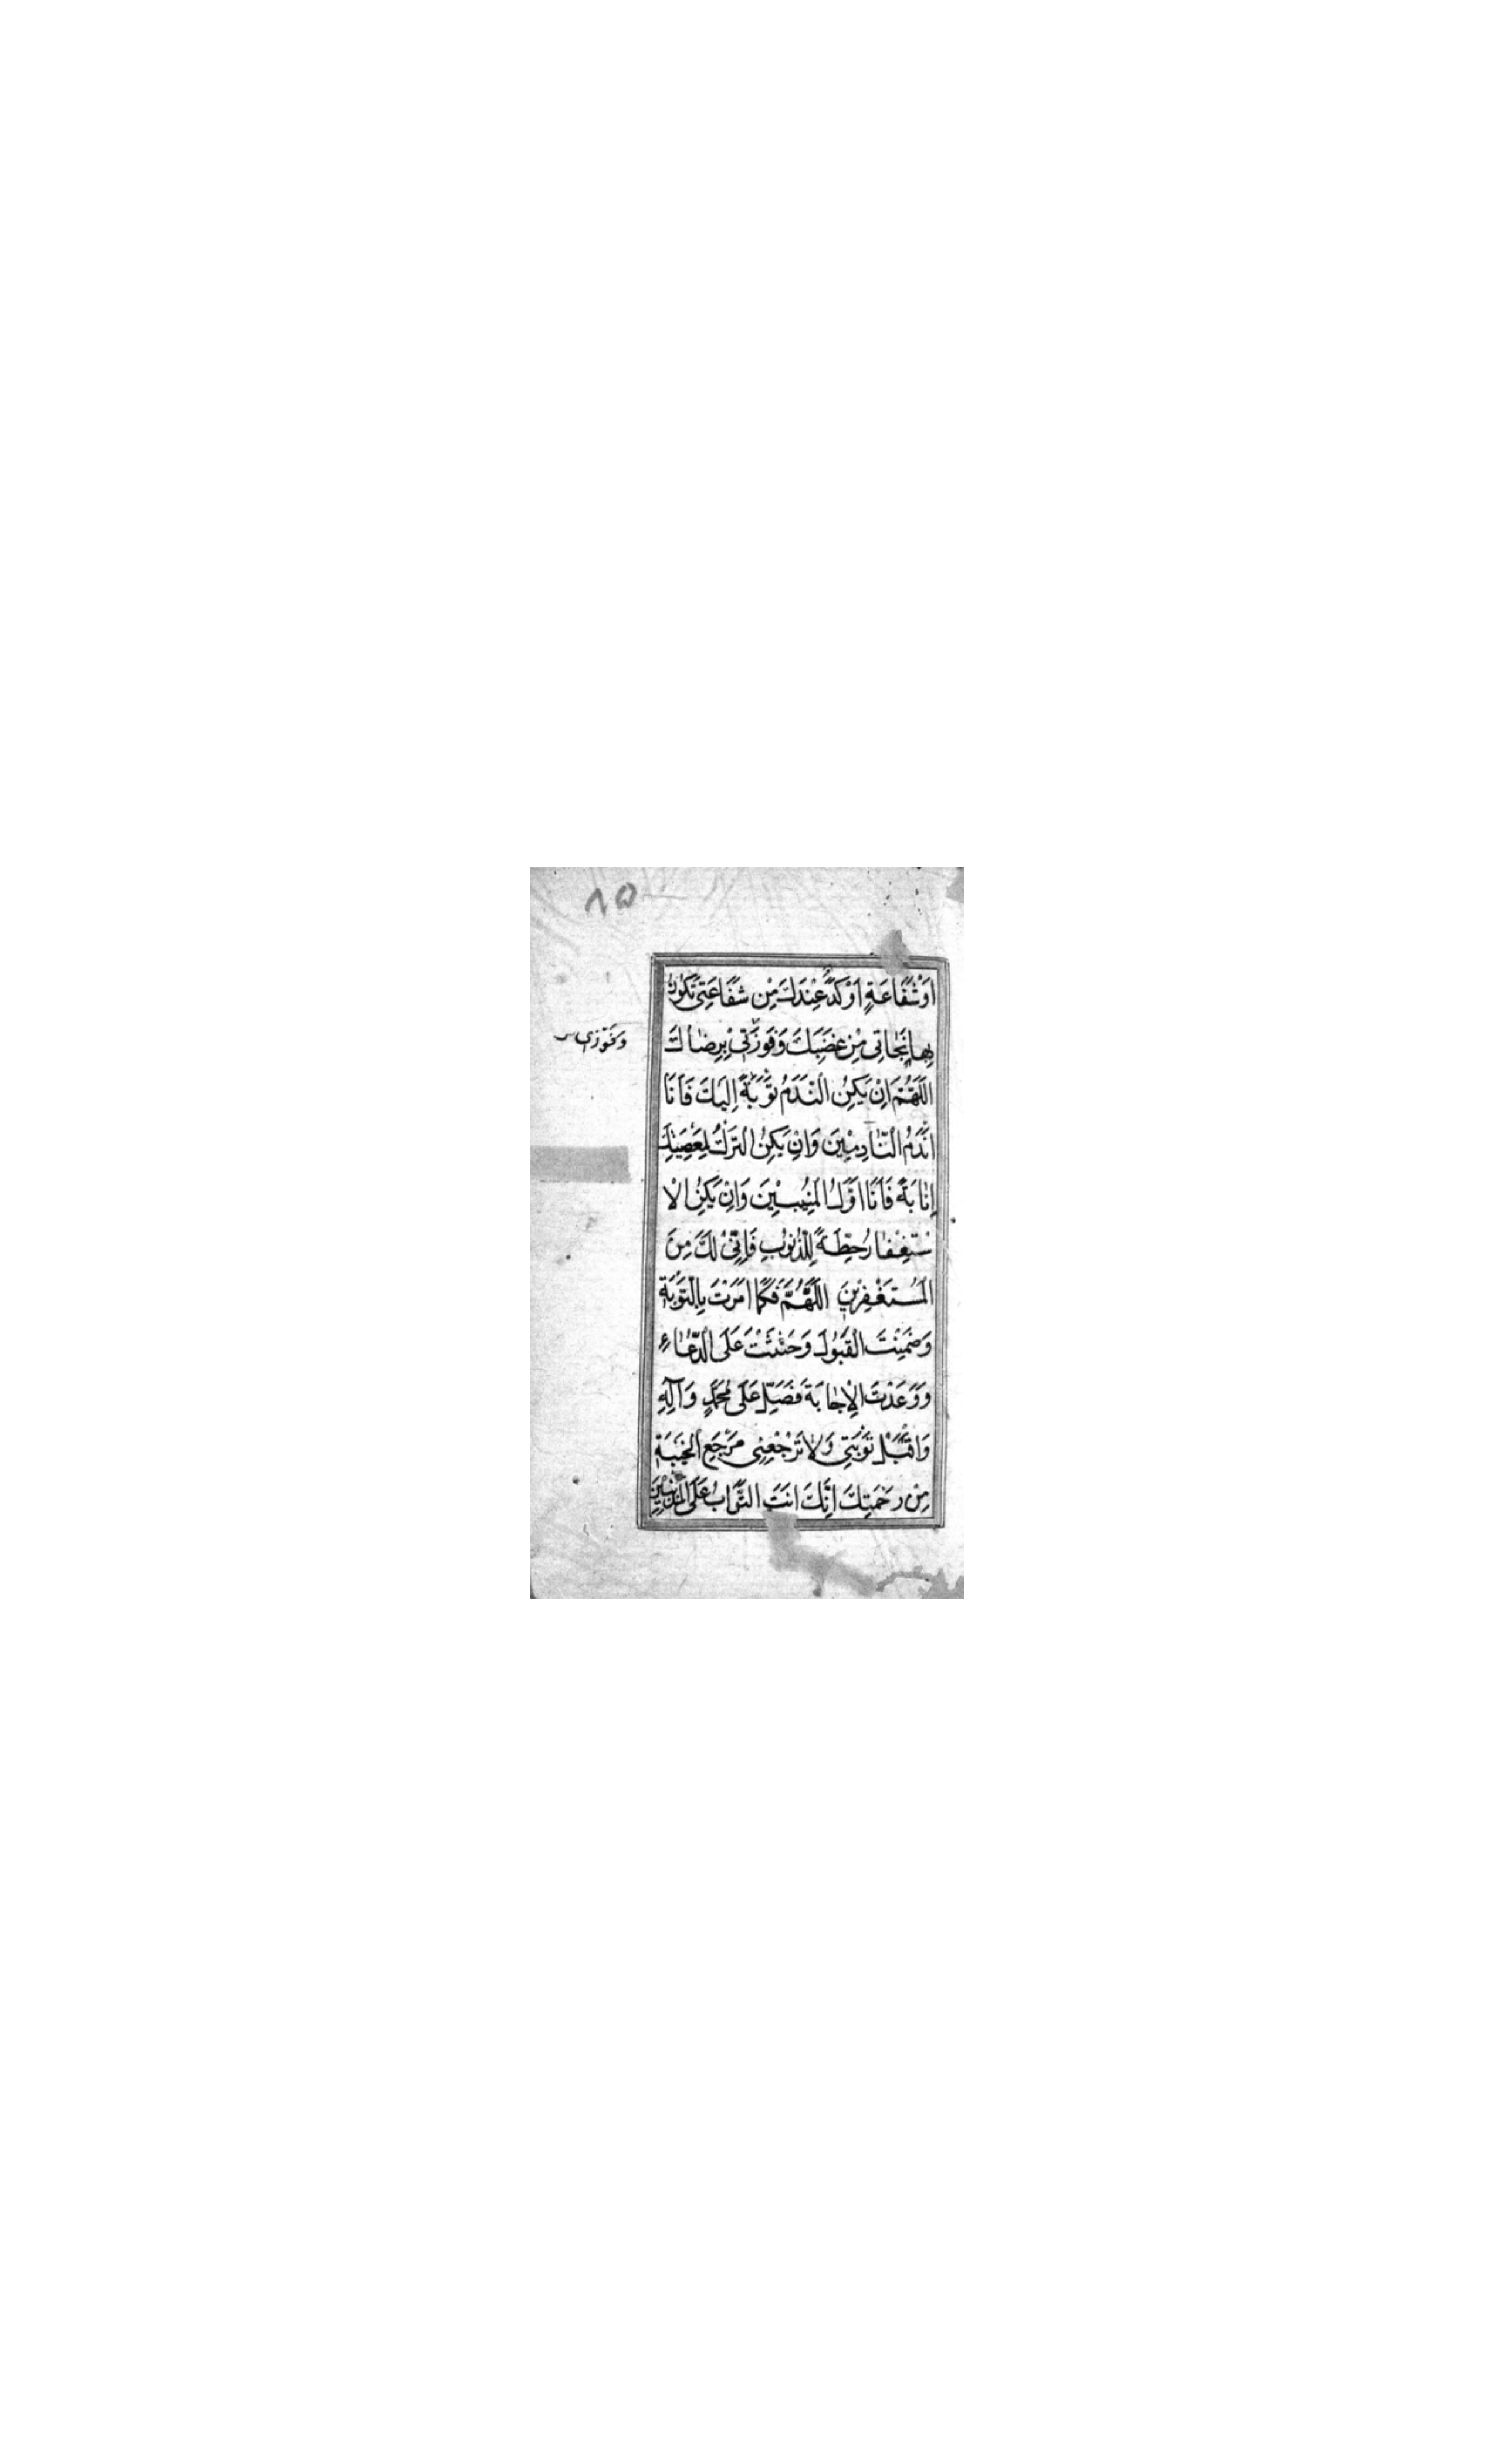 ٨٥
اَوْشَفَاعَةٍ اَوْكَدُ عِنْدَكَ مِنْ شَفَاعَتِي تَكُونُ
بِهَا نَجَاتِي مِنْ غَضَبِكَ وَفَوْزَتِي بِرِضَاكَ
وَفَوْزِي
اَللّٰهُمَّ اِنْ يَكُنِ النَّدَمُ تَوْبَةً اِلَيْكَ فَاَنَا
اَنْدَمُ النَّادِمِينَ وَاِنْ يَكُنِ التَّرْكُ لِمَعْصِيَتِكَ
اِنَابَةً فَاَنَا اَوَّلُ الْمُنِيبِينَ وَاِنْ يَكُنِ الْاِ
سْتِغْفَارُ حِطَّةً لِلذُّنُوبِ فَاِنِّي لَكَ مِنَ
الْمُسْتَغْفِرِينَ اَللّٰهُمَّ فَكَمَا اَمَرْتَ بِالتَّوْبَةِ
وَضَمِنْتَ الْقَبُولَ وَحَثَثْتَ عَلَى الدُّعَاءِ
وَوَعَدْتَ الْاِجَابَةَ فَصَلِّ عَلَى مُحَمَّدٍ وَآلِهِ
وَاقْبَلْ تَوْبَتِي وَلَا تَرْجِعْنِي مَرْجِعَ الْخَيْبَةِ
مِنْ رَحْمَتِكَ اِنَّكَ اَنْتَ التَّوَّابُ عَلَى الْمُذْنِبِينَ